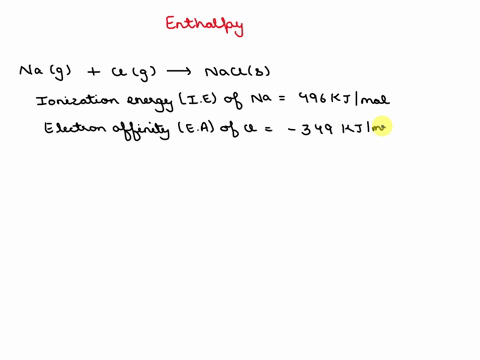 Enthalpy
Na (g) + Cl (g) ⟶ NaCl(s)
Ionization energy (I.E) of Na = 496 KJ/mol
Electron affinity (E.A) of Cl = - 349 KJ/mo